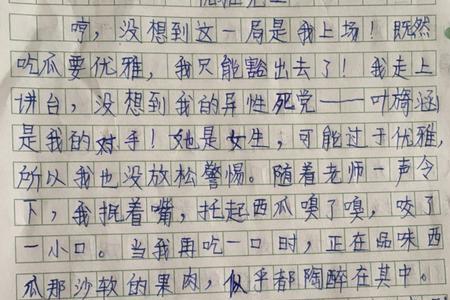 哼，没想到这一局是我上场！既然
吃瓜要优雅，我只能豁出去了！我走上
讲台，没想到我的异性死党——叶旖涵
是我的对手！她是女生，可能过于优雅，
所以我也没放松警惕。随着老师一声令
下，我抿着嘴，托起西瓜嗅了嗅，咬了
一小口。当我再吃一口时，正在品味西
瓜那沙软的果肉，似乎都陶醉在其中。